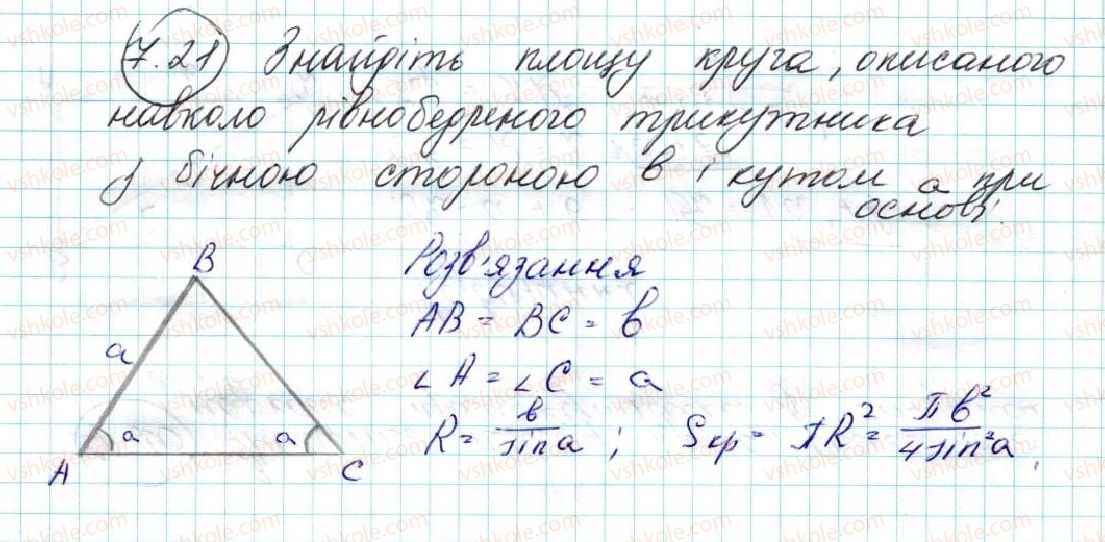 7.21 Знайдіть площу круга, описаного
навколо рівнобедреного трикутника
з бічною стороною в і кутом а при
основі.
Розв'язання
B
AB = BC = в
a
∠A = ∠C = a
a a
R = в/sin a ; Sкр = πR² = πв²/4sin²a.
A C